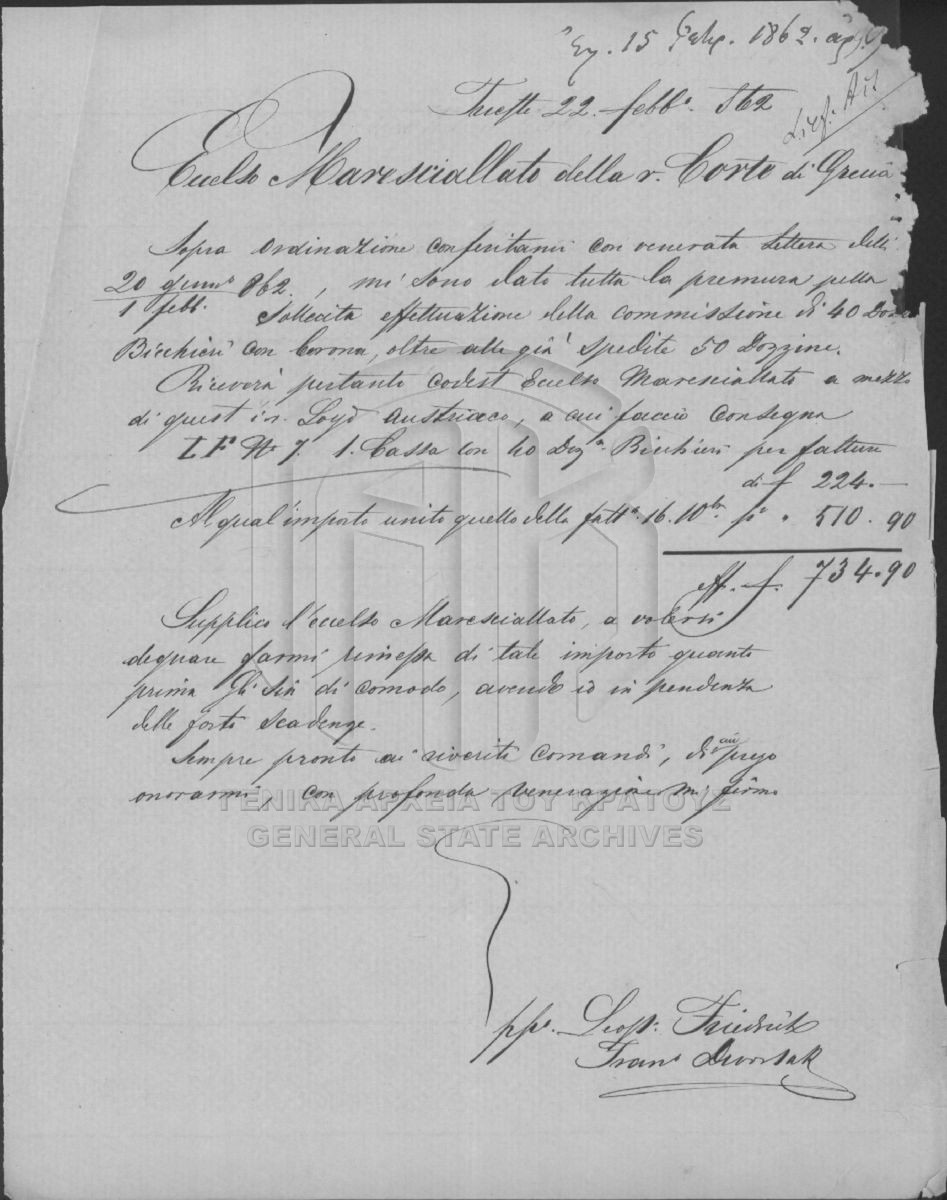 15 1862.
Trieste 22. febb.º 862
Eccelso Maresciallato della r. Corte di Grecia
Sopra Ordinazione conferitami con venerata Lettera delli
20 genn.º / 1 febb. 862., mi sono dato tutta la premura pella
Sollecita effettuazione della commissione di 40 Dozz
Bicchieri con Corona, oltre alle già spedite 50 Dozzine.
Riceverà pertanto codest Eccelso Maresciallato a mezzo
di quest i.r. Loyd Austriaco, a cui faccio consegna
LF Nº 7. 1. Cassa con 40 Doz.ª Bicchieri per fattura
di f 224.—
Al qual'importo unito quello della fatt.ª 16. 10br. p " 510.90
eff. f. 734.90
Supplico l'eccelso Maresciallato, a volersi
degnare farmi rimessa di tale importo quanto
prima gli sia di comodo, avendo io in pendenza
delle forti scadenze.
Sempre pronto ai riveriti comandi, di cui prego
onorarmi, con profonda venerazione mi firmo
ΓΕΝΙΚΑ ΑΡΧΕΙΑ ΤΟΥ ΚΡΑΤΟΥΣ
GENERAL STATE ARCHIVES
ppª. Leop. Friedrich
Franº Dworsak